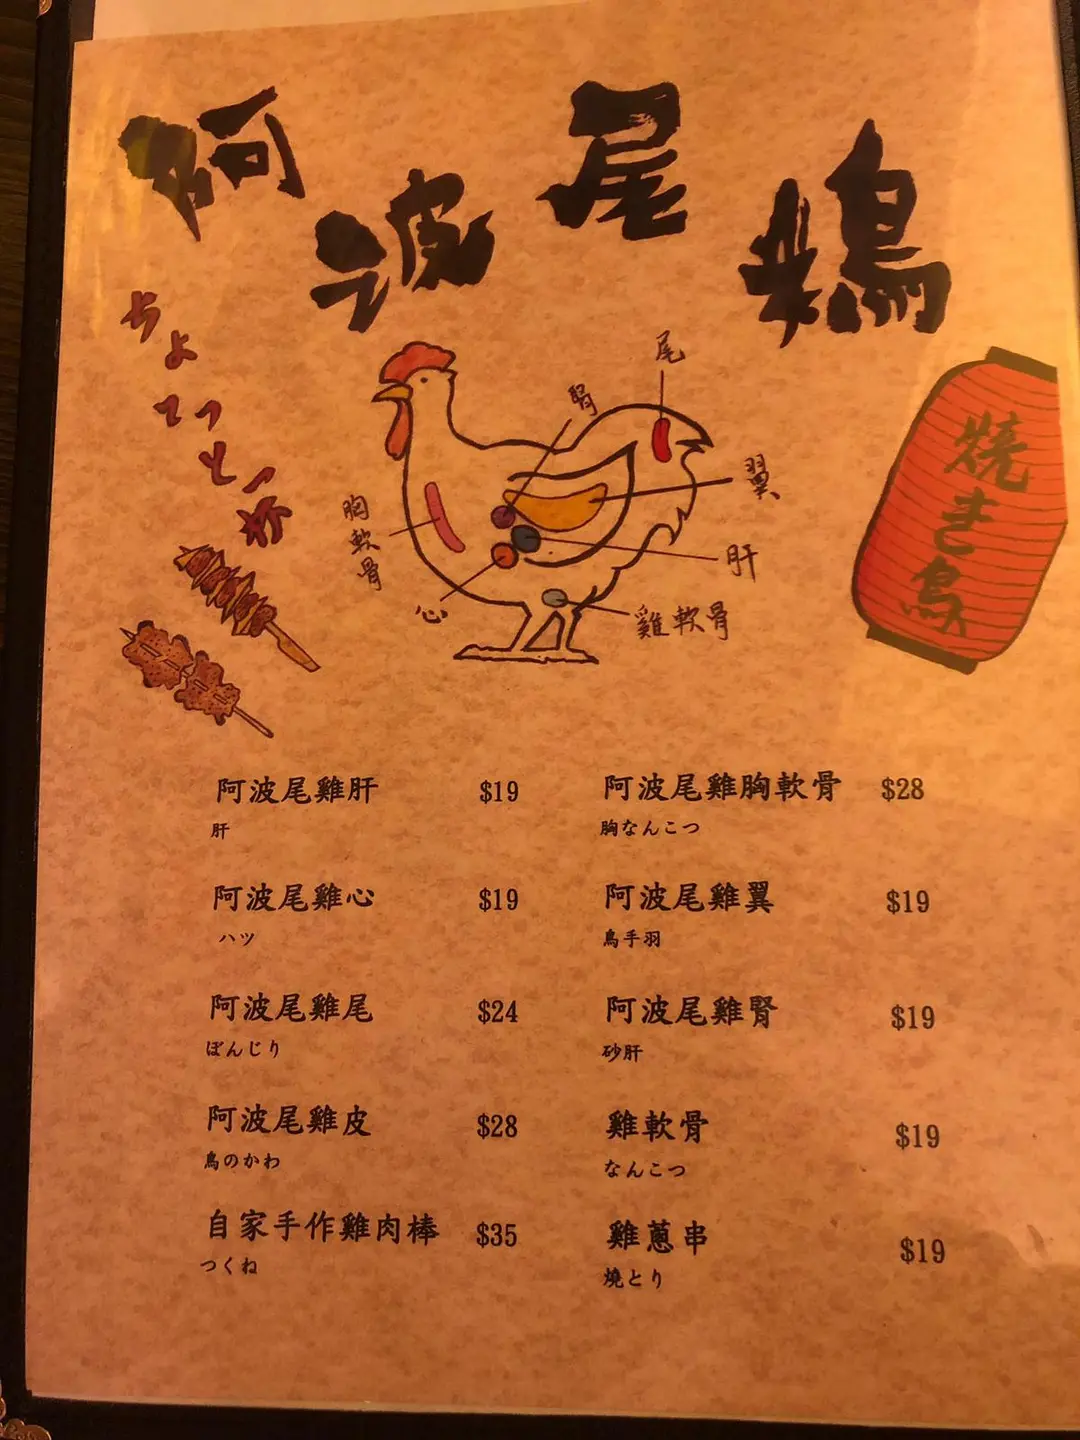 阿波尾鶏
ちょてっとー杯
焼き鳥
尾
腎
翼
胸軟骨
肝
心
雞軟骨
阿波尾雞肝 $19
肝
阿波尾雞心 $19
ハツ
阿波尾雞尾 $24
ぼんじり
阿波尾雞皮 $28
鳥のかわ
自家手作雞肉棒 $35
つくね
阿波尾雞胸軟骨 $28
胸なんこつ
阿波尾雞翼 $19
鳥手羽
阿波尾雞腎 $19
砂肝
雞軟骨 $19
なんこつ
雞蔥串 $19
燒とり